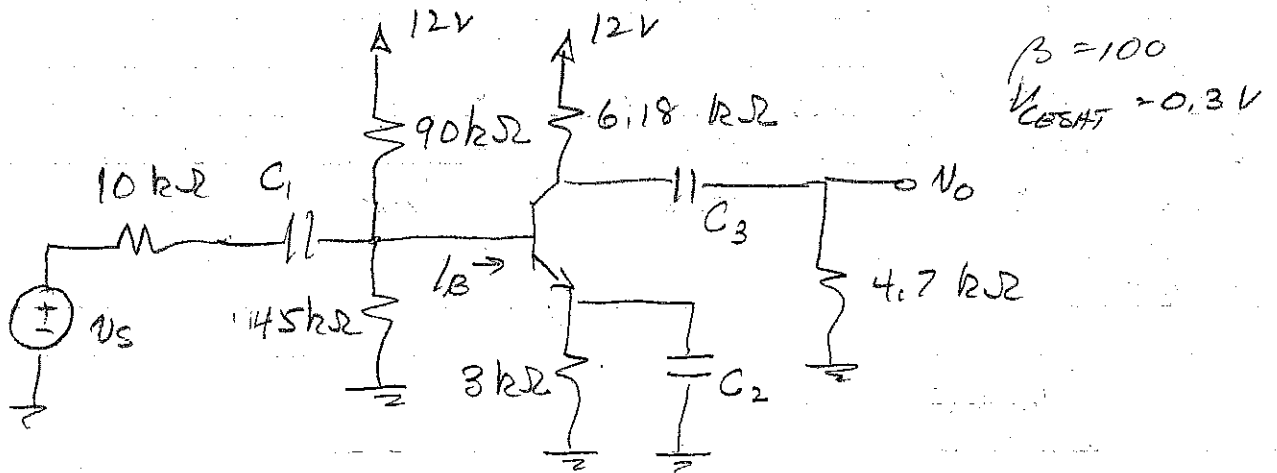 12V
12V
β = 100
V_CESAT = 0.3 V
90kΩ
6.18 kΩ
10 kΩ
C₁
C₃
v₀
I_B →
4.7 kΩ
v_S
45kΩ
3 kΩ
C₂